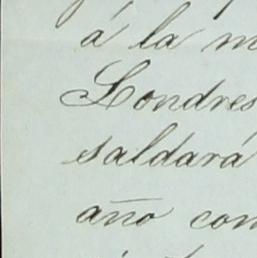 á la
Londres
saldará
año